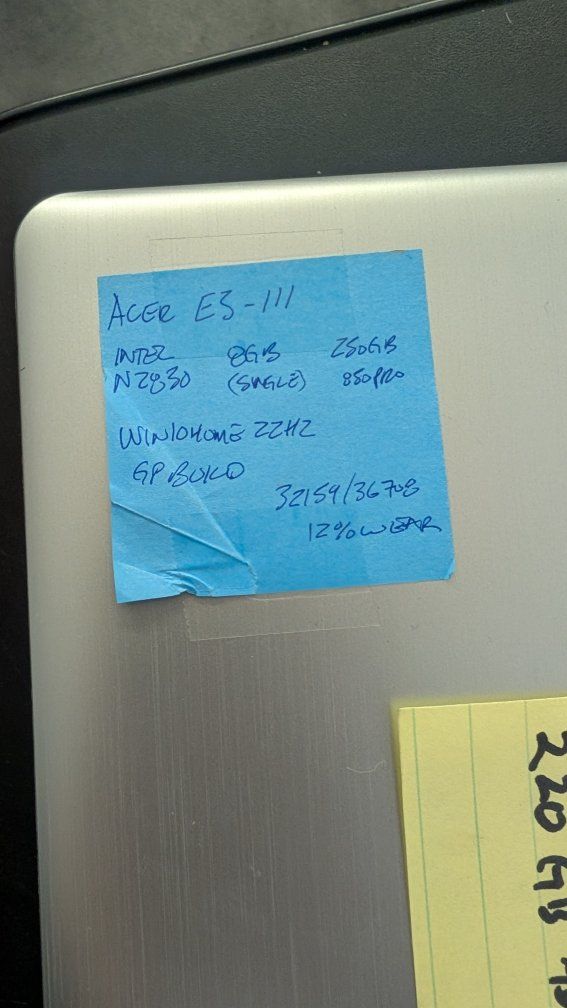 ACER E3-111
INTEL 8GB 250GB
N2830 (SINGLE) 850PRO
WIN10HOME 22H2
GP BUILD
32159/36708
12% WEAR
220 GB